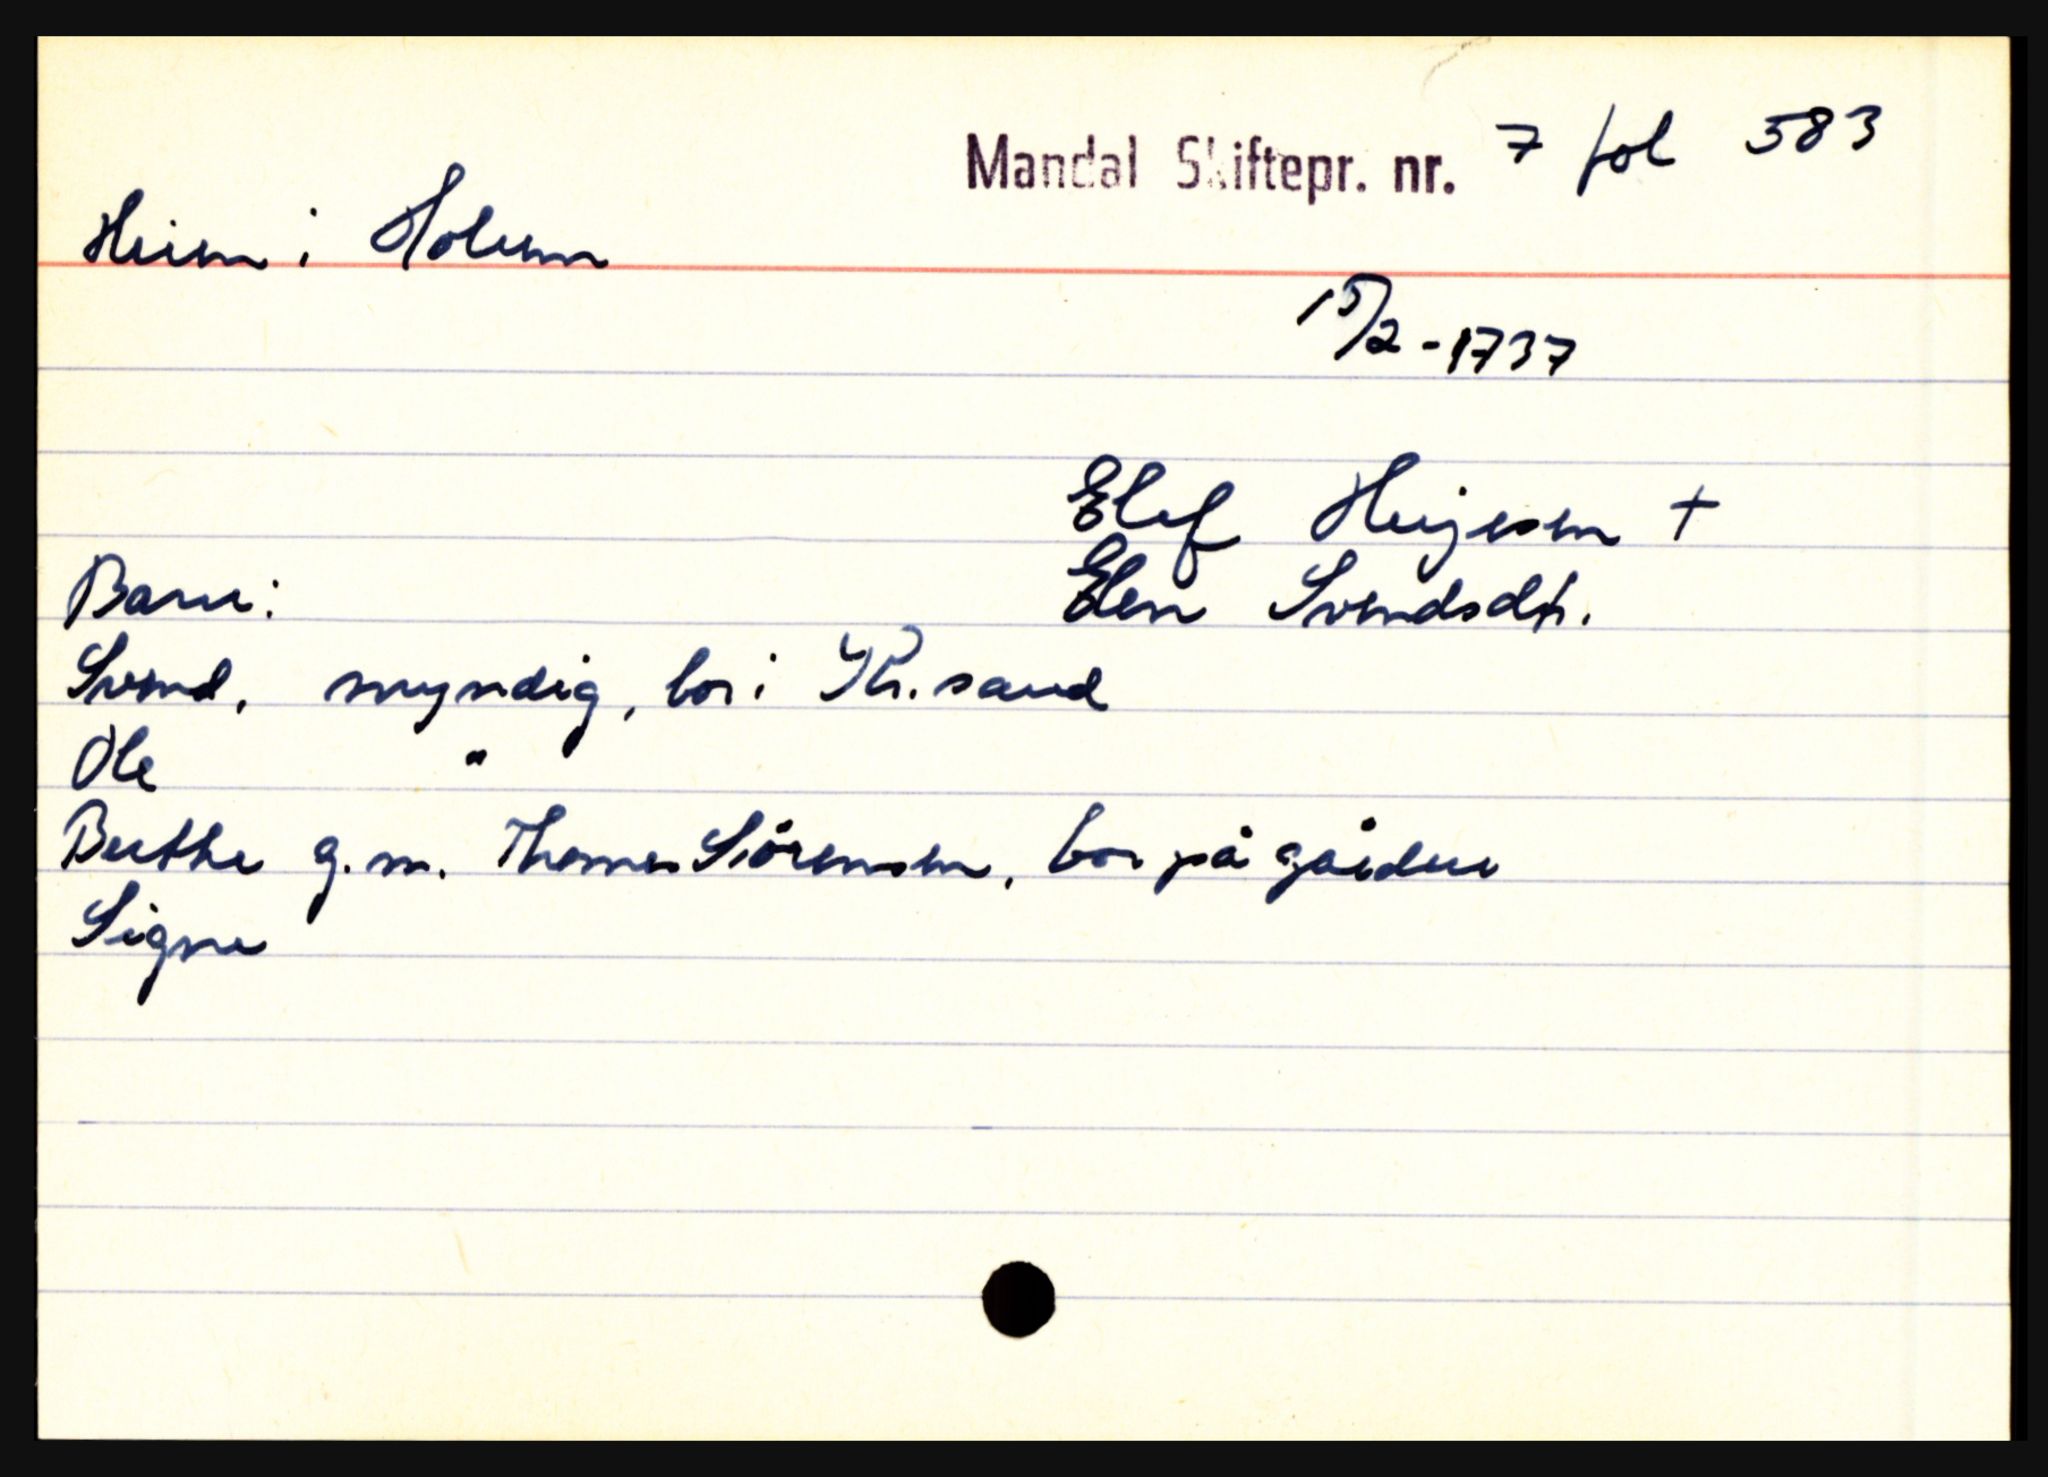 Mandal Skiftepr. nr. 7 fol 583
Heim i Holum
15/2-1737
Elef Heijesen +
Barn: Elen Svendsdtr.
Svend, myndig, bor i Kr.sand
Ole "
Berthe g.m. Thomes Sörensen, bor på gården
Signe